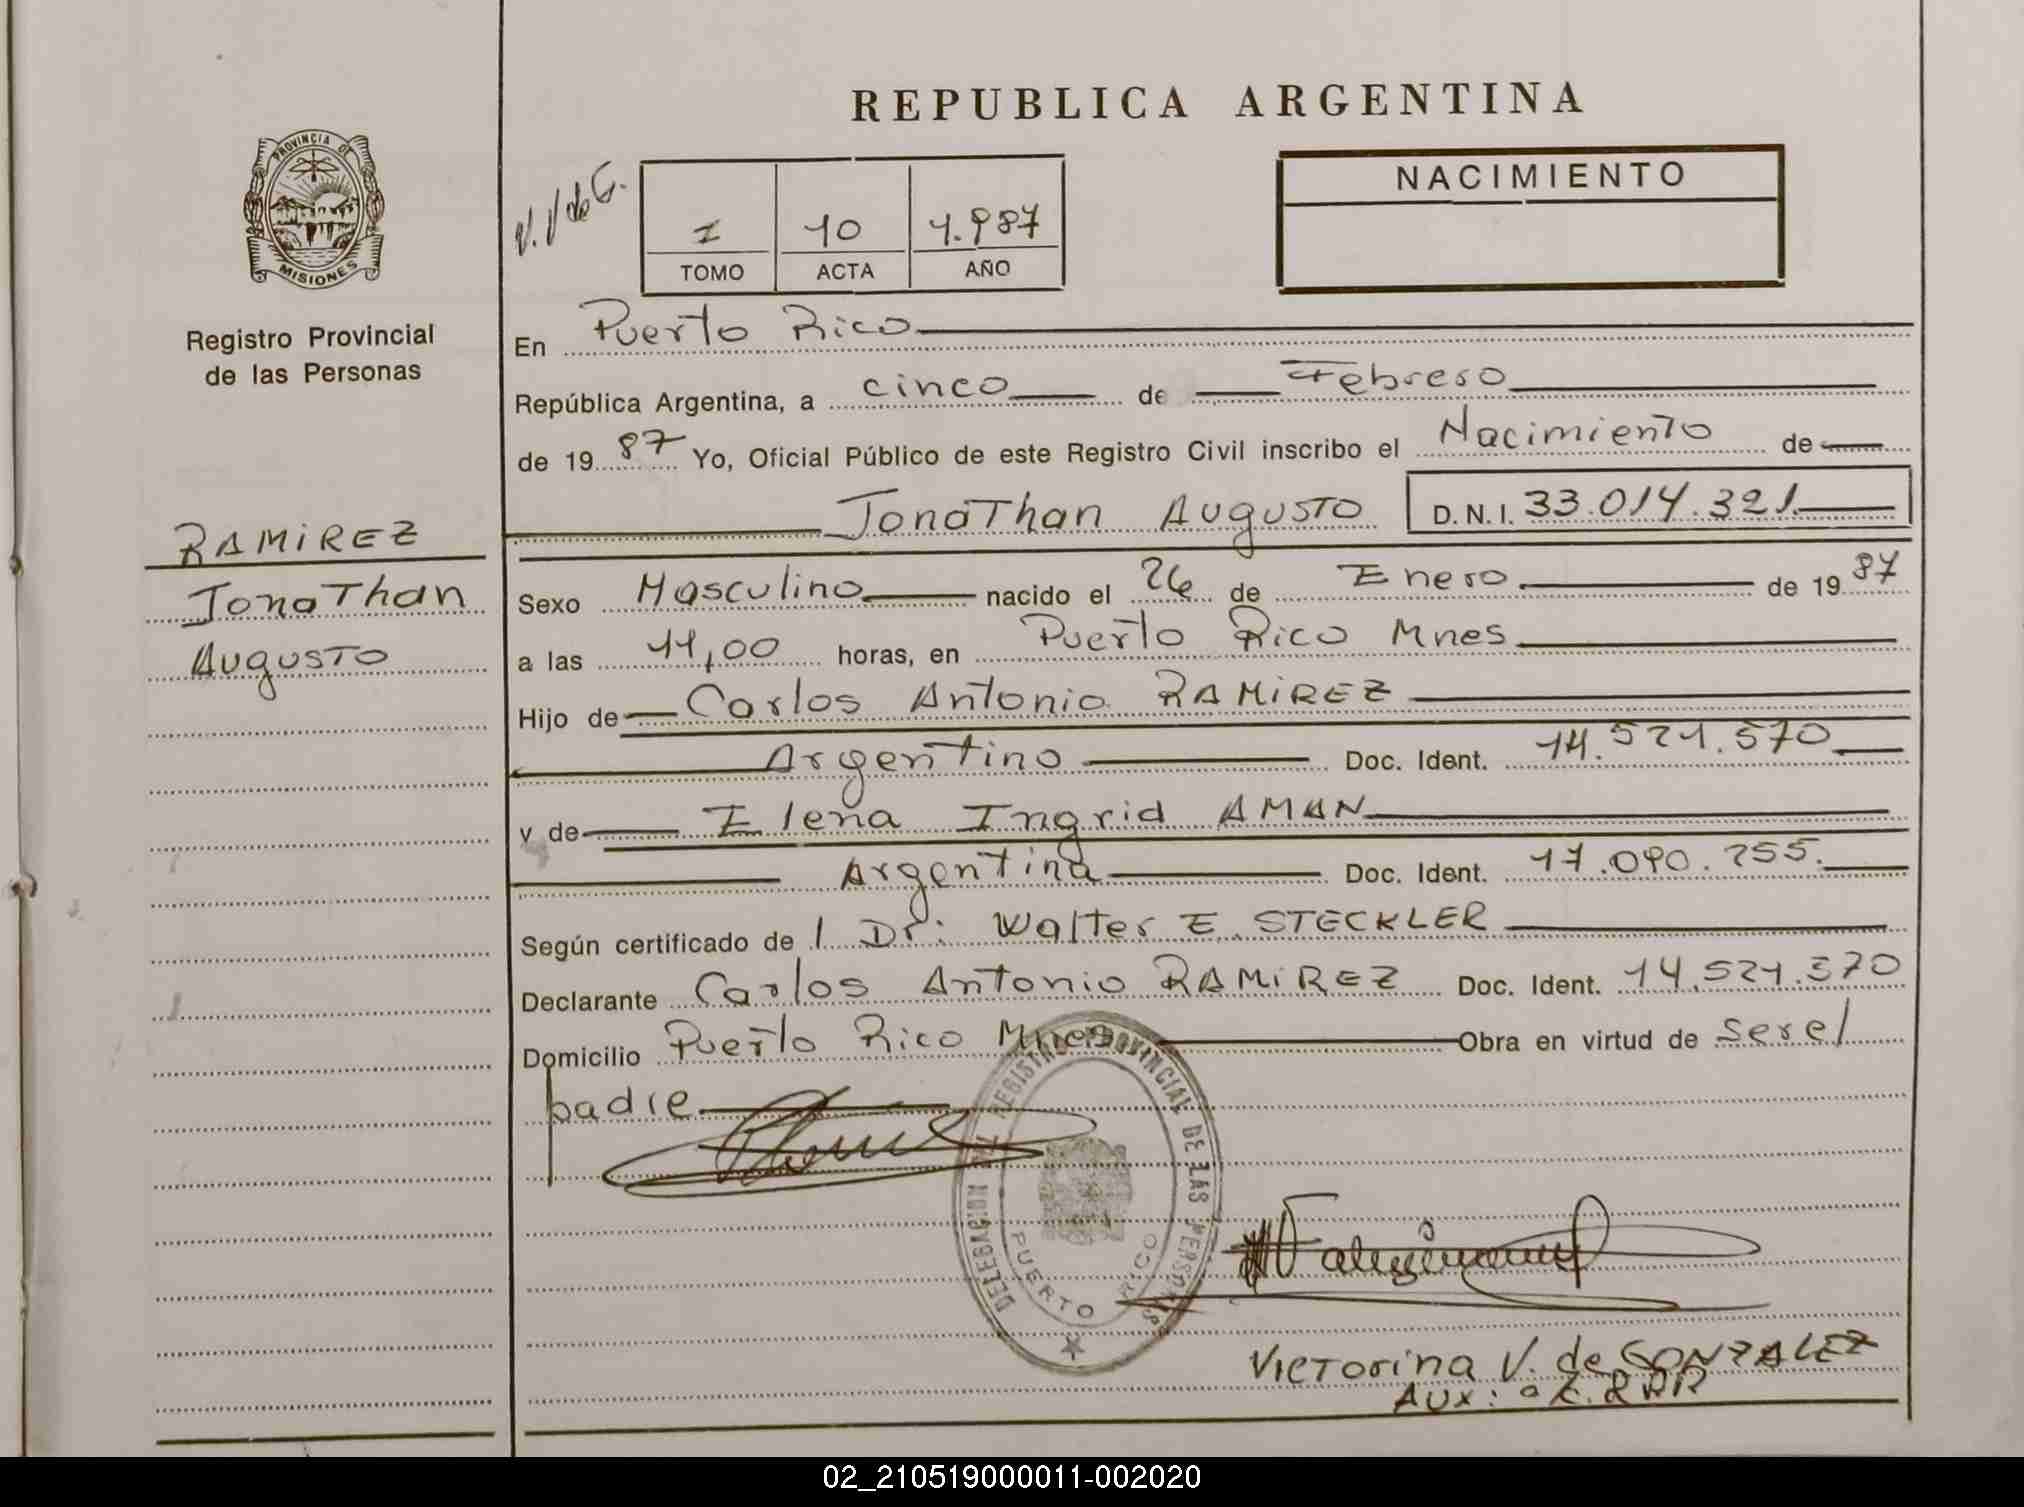 REPUBLICA ARGENTINA
PROVINCIA DE
MISIONES
Registro Provincial
de las Personas
V. V de G.
I 10 1.987
TOMO ACTA AÑO
NACIMIENTO
En Puerto Rico
República Argentina, a cinco de Febrero
de 19 87 Yo, Oficial Público de este Registro Civil inscribo el Nacimiento de
Jonathan Augusto D.N.I. 33.014.321.
RAMIREZ
Jonathan
Augusto
Sexo Masculino nacido el 26 de Enero de 19 87
a las 11,00 horas, en Puerto Rico Mnes
Hijo de Carlos Antonio RAMIREZ
Argentino Doc. Ident. 14.521.570
y de Elena Ingrid AMAN
Argentina Doc. Ident. 17.090.255.
Según certificado de l Dr: Walter E. STECKLER
Declarante Carlos Antonio RAMIREZ Doc. Ident. 14.521.570
Domicilio Puerto Rico Mnes Obra en virtud de ser el
padre
DELEGACION DEL REGISTRO PROVINCIAL DE LAS PERSONAS
PUERTO RICO
Victorina V. de GONZALEZ
Aux:
02_210519000011-002020